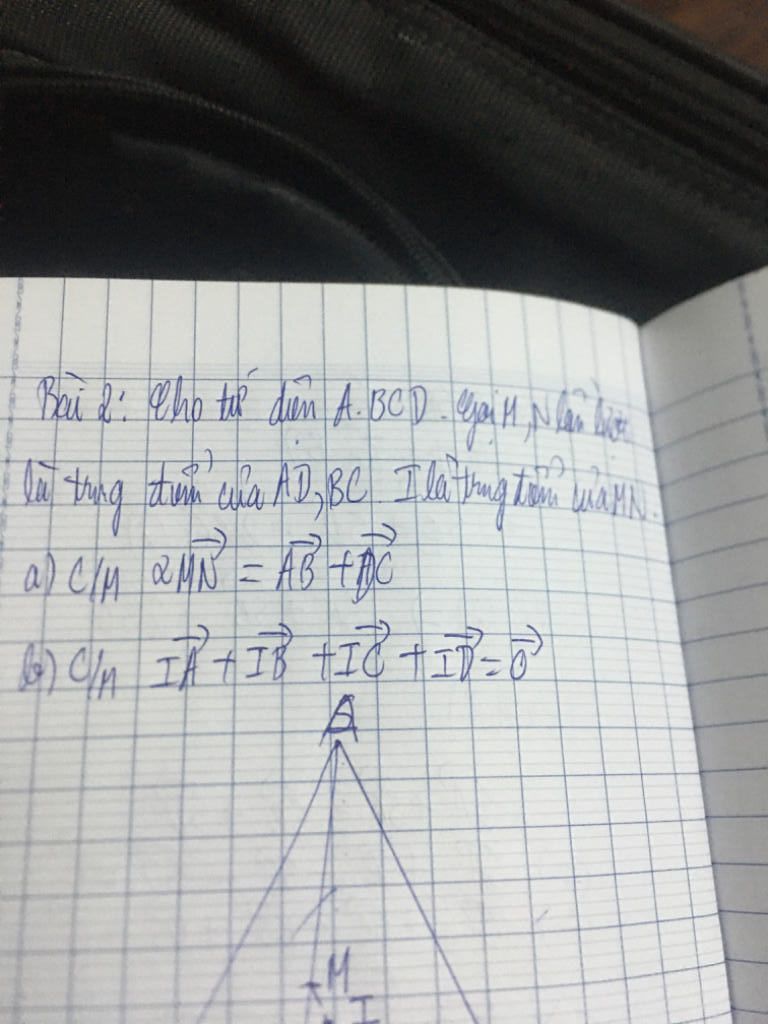 Bài 2: Cho tứ diện A.BCD. Gọi M, N lần lượt
là trung điểm của AD, BC. I là trung điểm của MN.
a) C/M 2MN⃗ = AB⃗ + DC⃗
b) C/M IA⃗ + IB⃗ + IC⃗ + ID⃗ = 0⃗
A
M
I